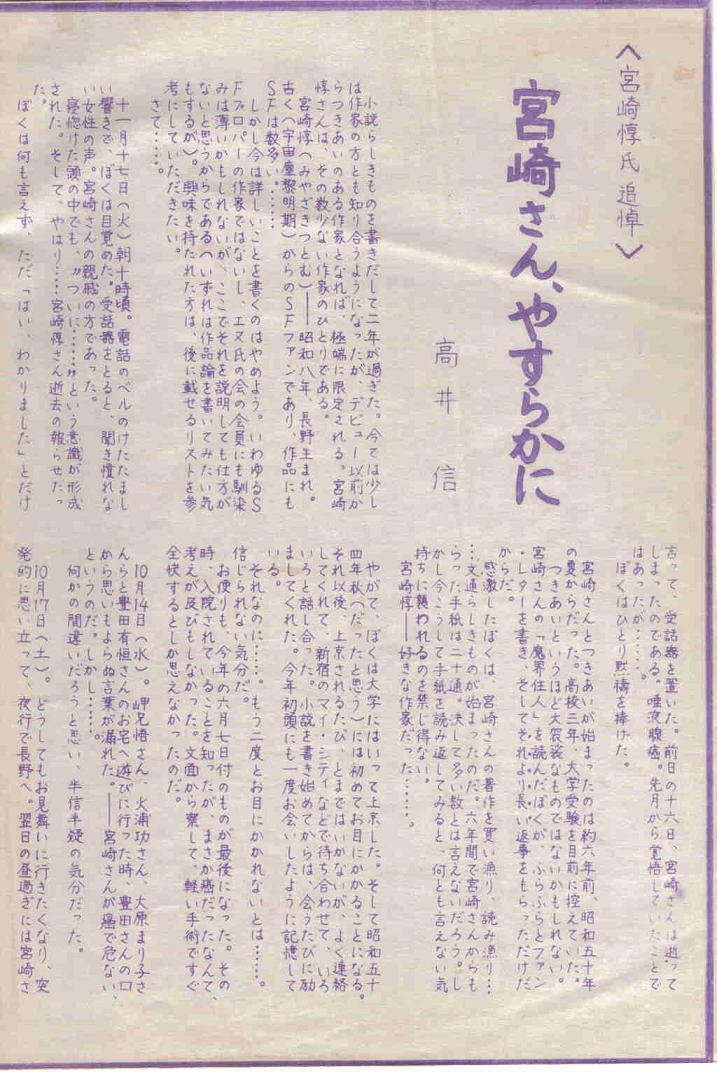 〈宮崎惇氏 追悼〉
宮崎さん、やすらかに
高井 信
小説らしきものを書きだして二年が過ぎた。今では少し
は作家の方とも知り合うようになったが、デビュー以前か
らつきあいのある作家となれば、極端に限定される。宮崎
惇さんは、その数少ない作家のひとりである。
宮崎惇(みやざきつとむ)——昭和八年、長野生まれ。
古く(宇宙塵黎明期)からのSFファンであり、作品にも
SFは数多い。……
しかし今は詳しいことを書くのはやめよう。いわゆるS
Fプロパーの作家ではないし、エヌ氏の会の会員にも馴染
みは薄いかもしれないが、ここでそれを説明しても仕方が
ないと思うからである(いずれは作品論を書いてみたい気
もするが)。興味を持たれた方は、後に載せるリストを参
考にしていただきたい。
さて……。
十一月十七日(火)朝十時頃。電話のベルのけたたまし
い響きで、ぼくは目覚めた。受話器をとると、聞き慣れな
い女性の声。宮崎さんの親戚の方であった。
寝惚けた頭の中でも、〃ついに……〃という意識が形成
された。そして、やはり……宮崎惇さん逝去の報らせだっ
た。
ぼくは何も言えず、ただ「はい、わかりました」とだけ
言って、受話器を置いた。前日の十六日、宮崎さんは逝って
しまったのである。唾液腺癌。先月から覚悟していたことで
はあったが……。
ぼくはひとり黙祷を捧げた。
宮崎さんとつきあいが始まったのは約六年前、昭和五十年
の夏からだった。高校三年、大学受験を目前に控えていた。
つきあいというほど大袈裟なものではないかもしれない。
宮崎さんの「魔界住人」を読んだぼくが、ふらふらとファン
・レターを書き、そしてそれより長い返事をもらっただけだ
からだ。
感激したぼくは、宮崎さんの著作を買い漁り、読み漁り…
…文通らしきものが始まったのだ。六年間で宮崎さんからも
らった手紙は二十通。決して多い数とは言えないだろう。し
かし今こうして手紙を読み返してみると、何とも言えない気
持ちに襲われるのを禁じ得ない。
宮崎惇——好きな作家だった……。
やがて、ぼくは大学にはいって上京した。そして昭和五十
四年秋(だったと思う)には初めてお目にかかることになる。
それ以後、上京されるたび、とまではいかないが、よく連絡
してくれて、新宿のマイ・シティなどで待ち合わせて、いろ
いろと話し合った。小説を書き始めてからは、会うたびに励
ましてくれた。今年初頭にも一度お会いしたように記憶して
いる。
それなのに……。もう二度とお目にかかれないとは……。
信じられない気分だ。
お便りも、今年の六月七日付のものが最後になった。その
時、入院されていることを知ったが、まさか癌だったなんて、
考えが及びもしなかった。文面から察して、軽い手術ですぐ
全快するとしか思えなかったのだ。
10月14日(水)。岬兄悟さん、火浦功さん、大原まり子さ
んらと豊田有恒さんのお宅へ遊びに行った時、豊田さんの口
から思いもよらぬ言葉が漏れた。——宮崎さんが癌で危ない、
というのだ。しかし……。
何かの間違いだろうと思い、半信半疑の気分だった。
10月17日(土)。どうしてもお見舞いに行きたくなり、突
発的に思い立って、夜行で長野へ。翌日の昼過ぎには宮崎さ